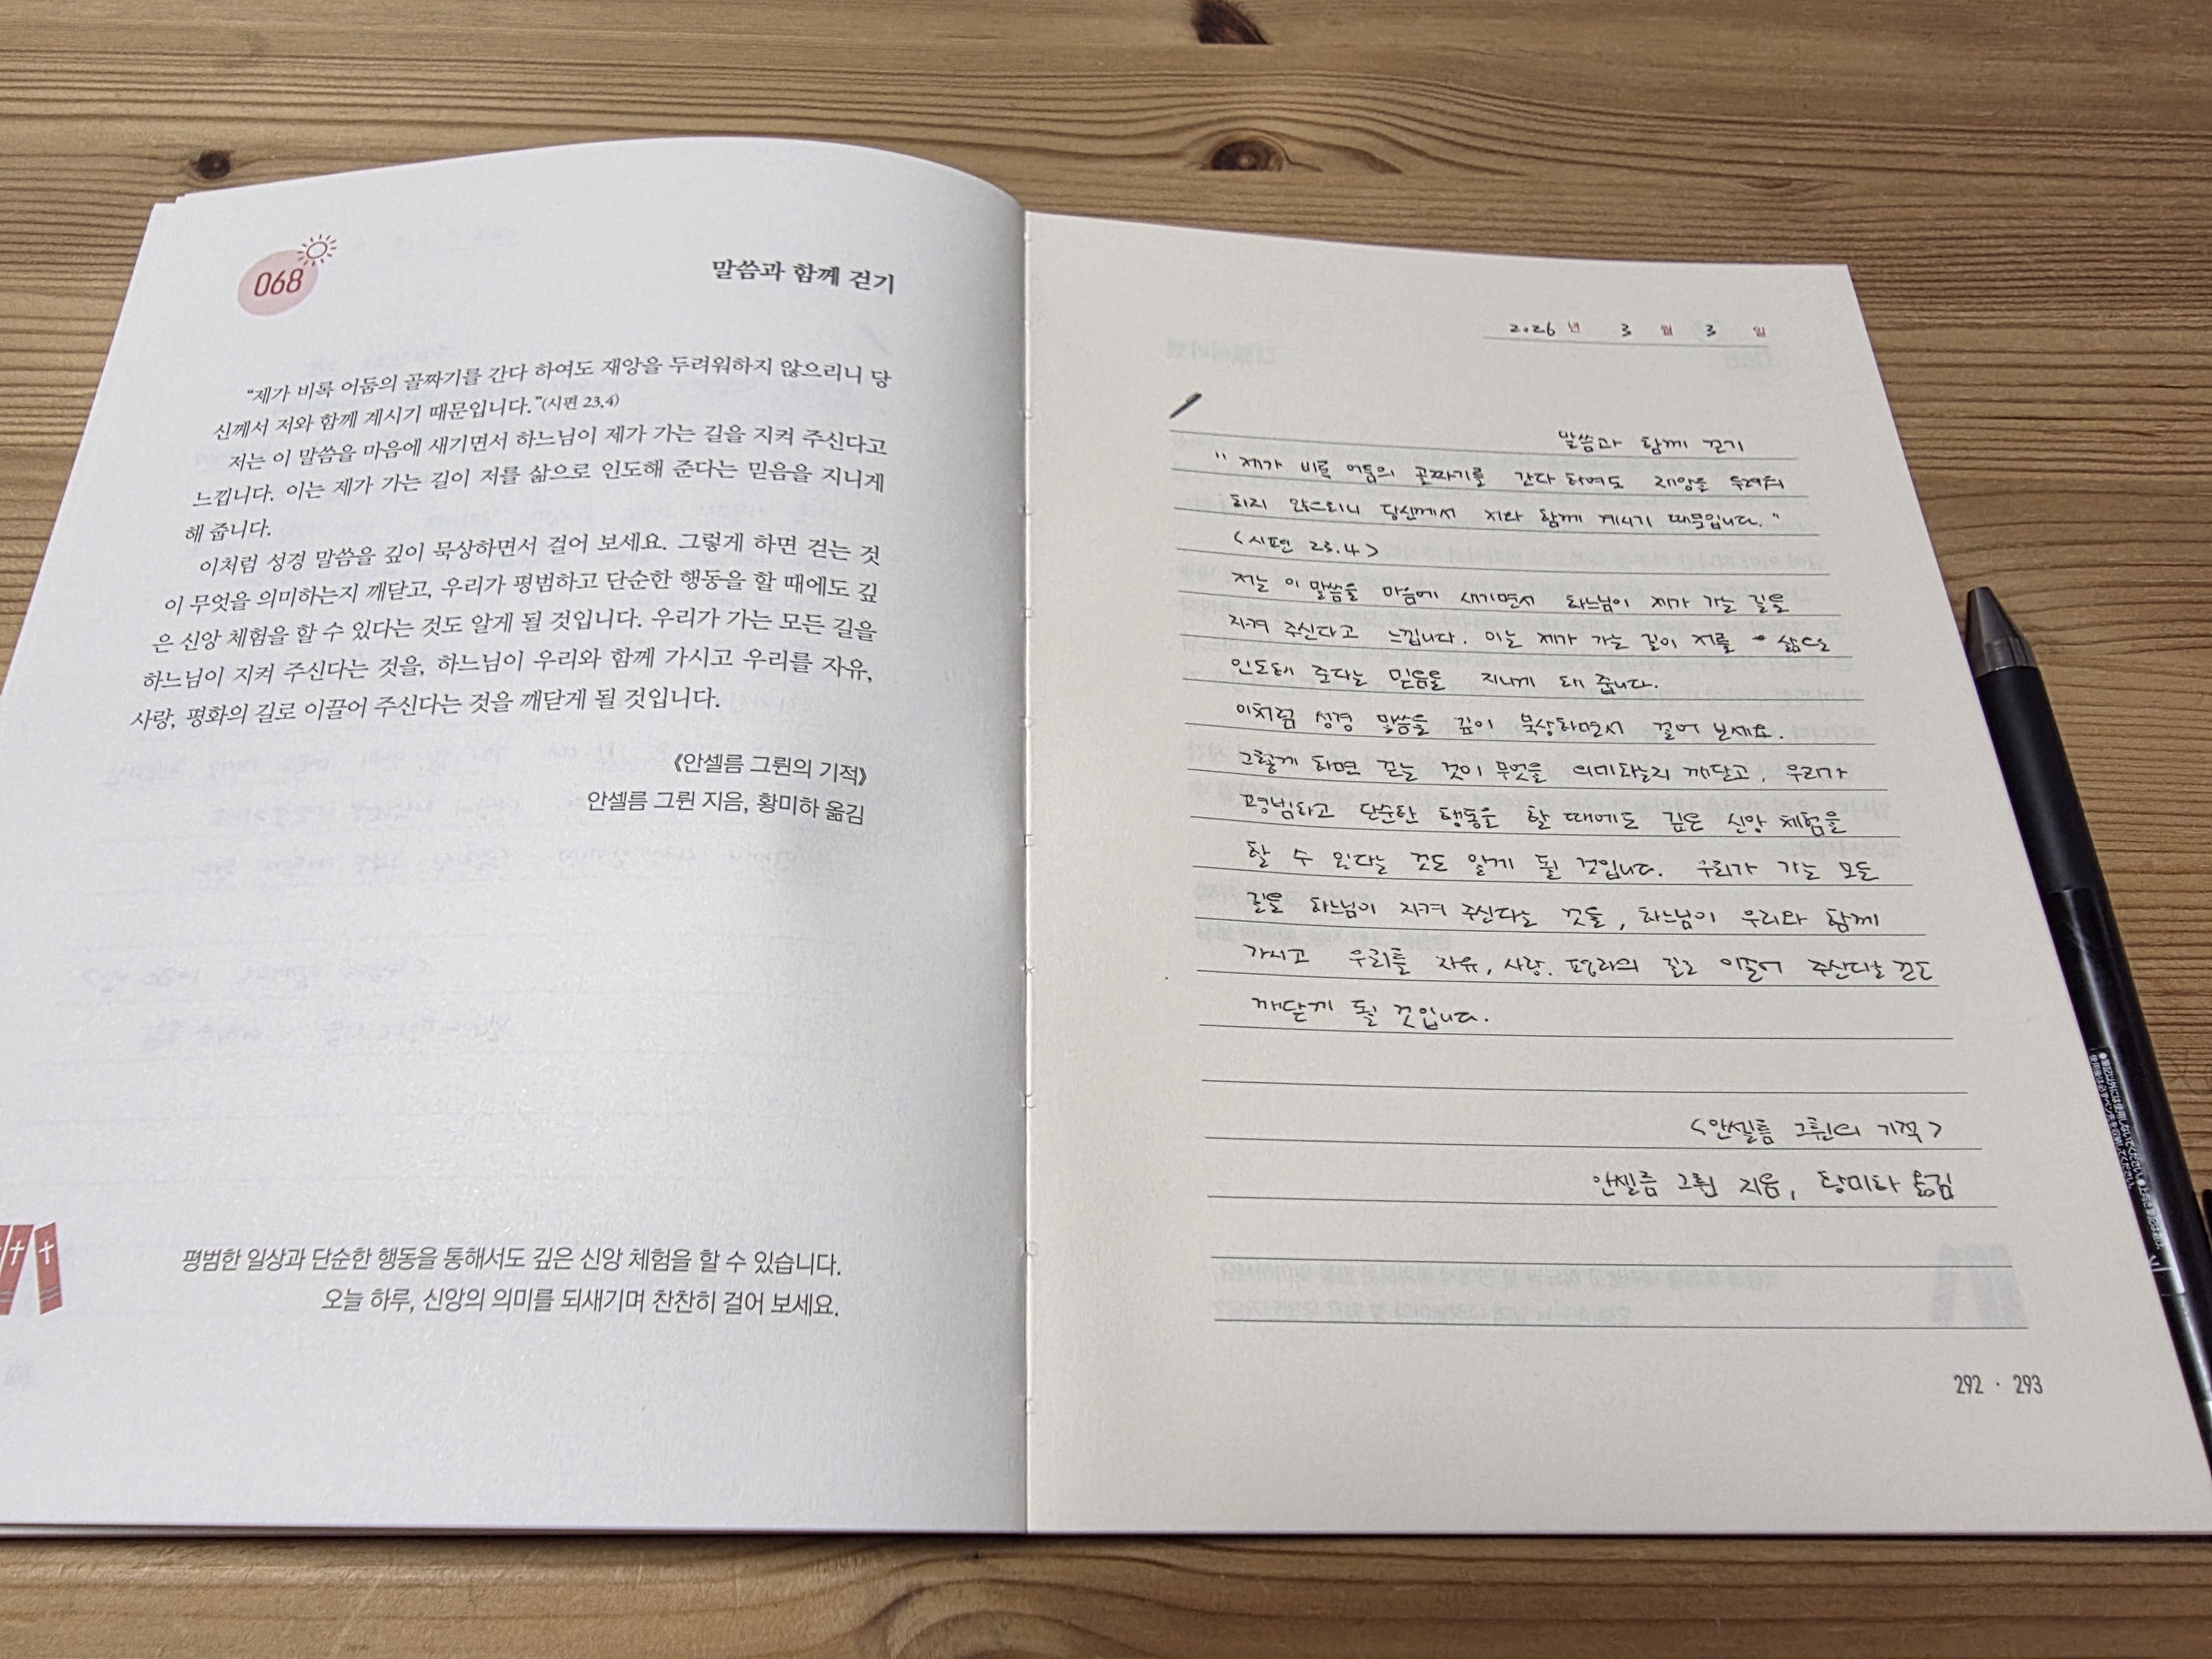 068
말씀과 함께 걷기
“제가 비록 어둠의 골짜기를 간다 하여도 재앙을 두려워하지 않으리니 당
신께서 저와 함께 계시기 때문입니다.”(시편 23,4)
저는 이 말씀을 마음에 새기면서 하느님이 제가 가는 길을 지켜 주신다고
느낍니다. 이는 제가 가는 길이 저를 삶으로 인도해 준다는 믿음을 지니게
해 줍니다.
이처럼 성경 말씀을 깊이 묵상하면서 걸어 보세요. 그렇게 하면 걷는 것
이 무엇을 의미하는지 깨닫고, 우리가 평범하고 단순한 행동을 할 때에도 깊
은 신앙 체험을 할 수 있다는 것도 알게 될 것입니다. 우리가 가는 모든 길을
하느님이 지켜 주신다는 것을, 하느님이 우리와 함께 가시고 우리를 자유,
사랑, 평화의 길로 이끌어 주신다는 것을 깨닫게 될 것입니다.
《안셀름 그륀의 기적》
안셀름 그륀 지음, 황미하 옮김
평범한 일상과 단순한 행동을 통해서도 깊은 신앙 체험을 할 수 있습니다.
오늘 하루, 신앙의 의미를 되새기며 찬찬히 걸어 보세요.
2026 년 3 월 3 일
말씀과 함께 걷기
" 제가 비록 어둠의 골짜기를 간다 하여도 재앙을 두려워
하지 않으리니 당신께서 저와 함께 계시기 때문입니다."
<시편 23.4>
저는 이 말씀을 마음에 새기면서 하느님이 제가 가는 길을
지켜 주신다고 느낍니다. 이는 제가 가는 길이 저를 삶으로
인도해 준다는 믿음을 지니게 해 줍니다.
이처럼 성경 말씀을 깊이 묵상하면서 걸어 보세요.
그렇게 하면 걷는 것이 무엇을 의미하는지 깨닫고, 우리가
평범하고 단순한 행동을 할 때에도 깊은 신앙 체험을
할 수 있다는 것도 알게 될 것입니다. 우리가 가는 모든
길을 하느님이 지켜 주신다는 것을, 하느님이 우리와 함께
가시고 우리를 자유, 사랑. 평화의 길로 이끌어 주신다는
깨닫게 될 것입니다.
<안셀름 그륀의 기적>
안셀름 그륀 지음, 황미하 옮김
292 · 293